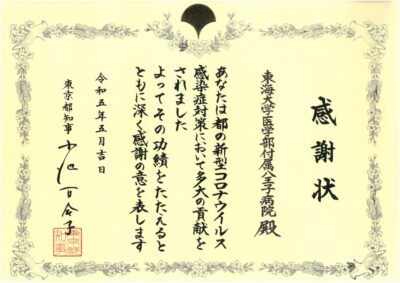 感謝状
東海大学医学部付属八王子病院 殿
あなたは都の新型コロナウイルス
感染症対策において多大の貢献を
されました
よってその功績をたたえると
ともに深く感謝の意を表します
令和五年五月吉日
東京都知事 小池百合子